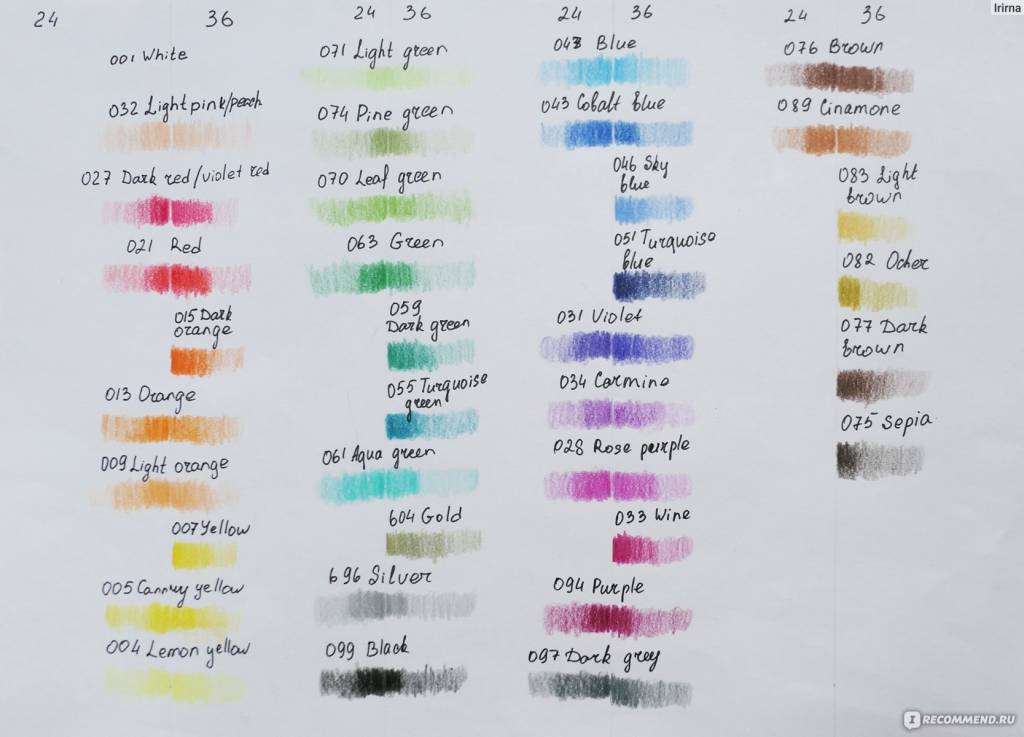 24 36
001 White
032 Light pink/peach
027 Dark red/violet red
021 Red
015 Dark
orange
013 Orange
009 Light orange
007 Yellow
005 Cannwy yellow
004 Lemon yellow
24 36
071 Light green
074 Pine green
070 Leaf green
063 Green
059
Dark green
055 Turquoise
green
061 Aqua green
604 Gold
696 Silver
099 Black
24 36
047 Blue
043 Cobalt blue
046 Sky
blue
051 Turquoiso
blue
031 Violet
034 Carmine
028 Rose purple
033 Wine
094 Purple
097 Dark grey
24 36
076 Brown
089 Cinamone
083 Light
brown
082 Ocher
077 Dark
brown
075 Sepia
Irirna
IRECOMMEND.RU